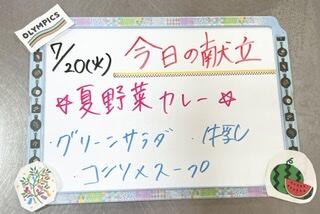 OLYMPICS
7/20(火) 今日の献立
☆夏野菜カレー☆
・グリーンサラダ ・牛乳
・コンソメスープ